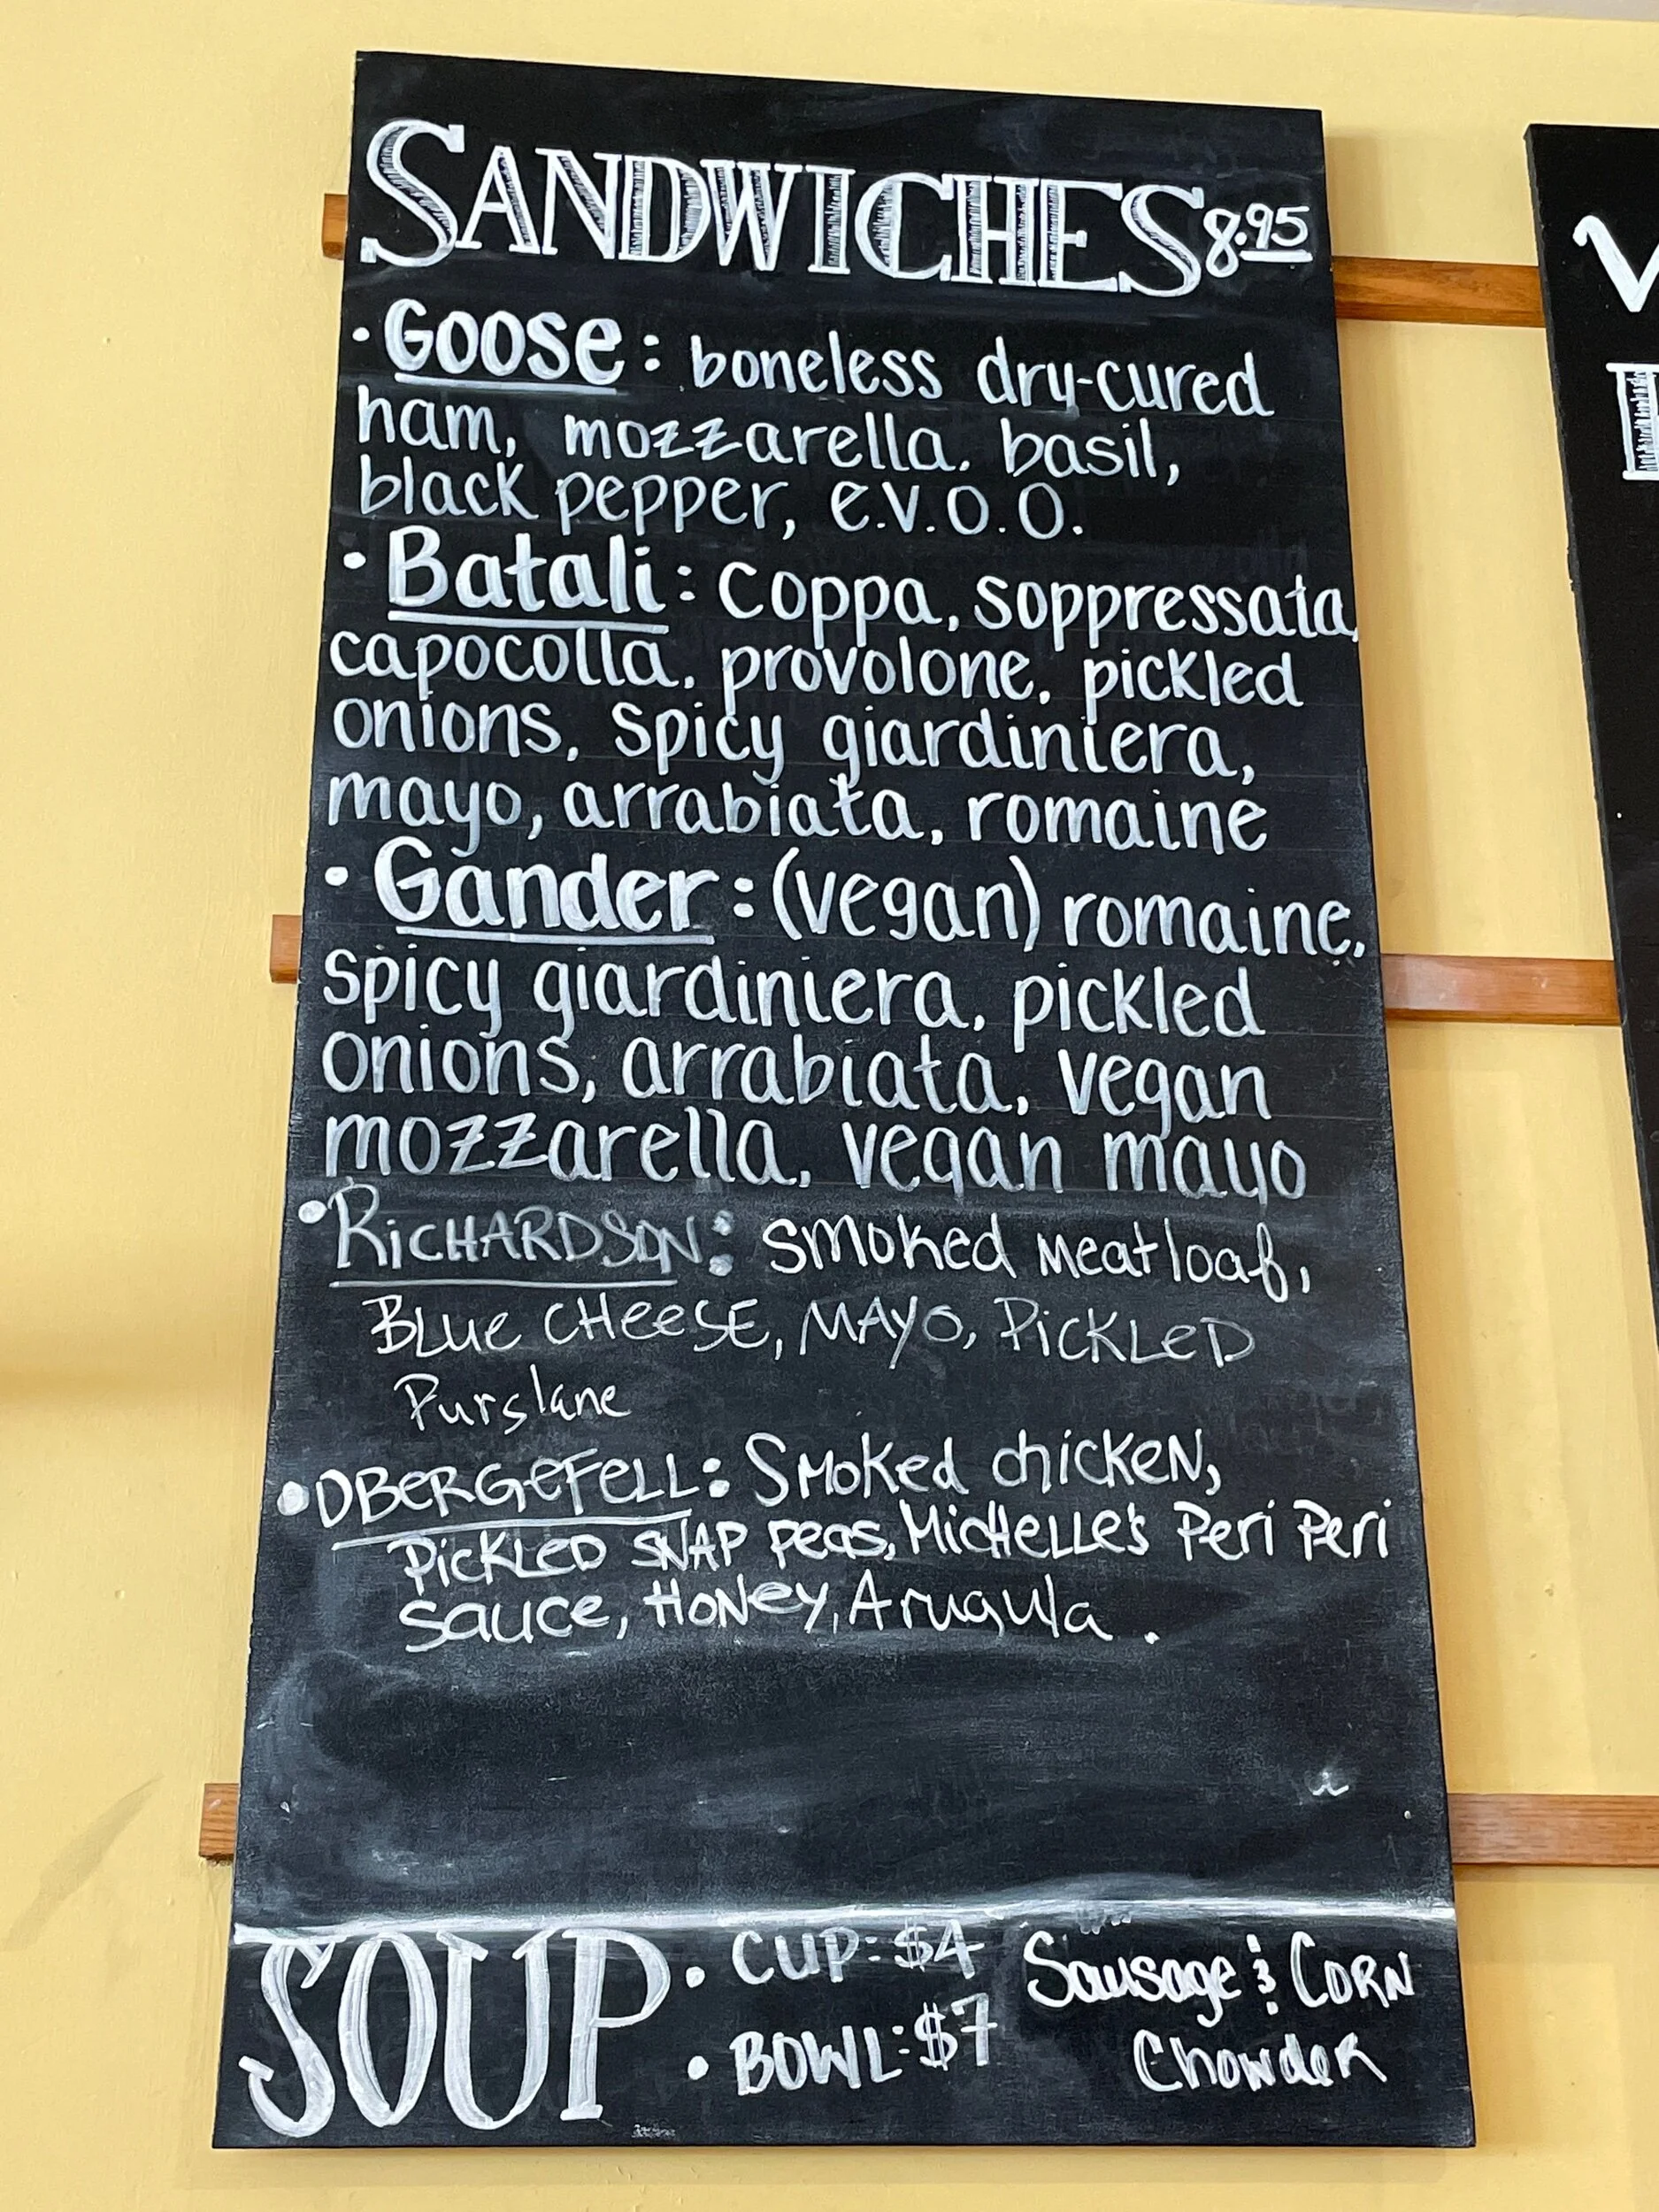 SANDWICHES 8.95
• Goose: boneless dry-cured
ham, mozzarella, basil,
black pepper, e.v.o.o.
• Batali: coppa, soppressata,
capocolla, provolone, pickled
onions, spicy giardiniera,
mayo, arrabiata, romaine
• Gander: (vegan) romaine,
spicy giardiniera, pickled
onions, arrabiata, vegan
mozzarella, vegan mayo
• RiCHARDSON: smoked meatloaf,
BLue CHeeSE, MAYO, PiCKLeD
Purslane
• OBeRGeFeLL: Smoked chicken,
PiCKLeD SNAP Peas, MicHeLLe's Peri Peri
sauce, HoNey, Arugula.
SOUP • CUP: $4 Sausage & CORN
• BOWL: $7 Chowder